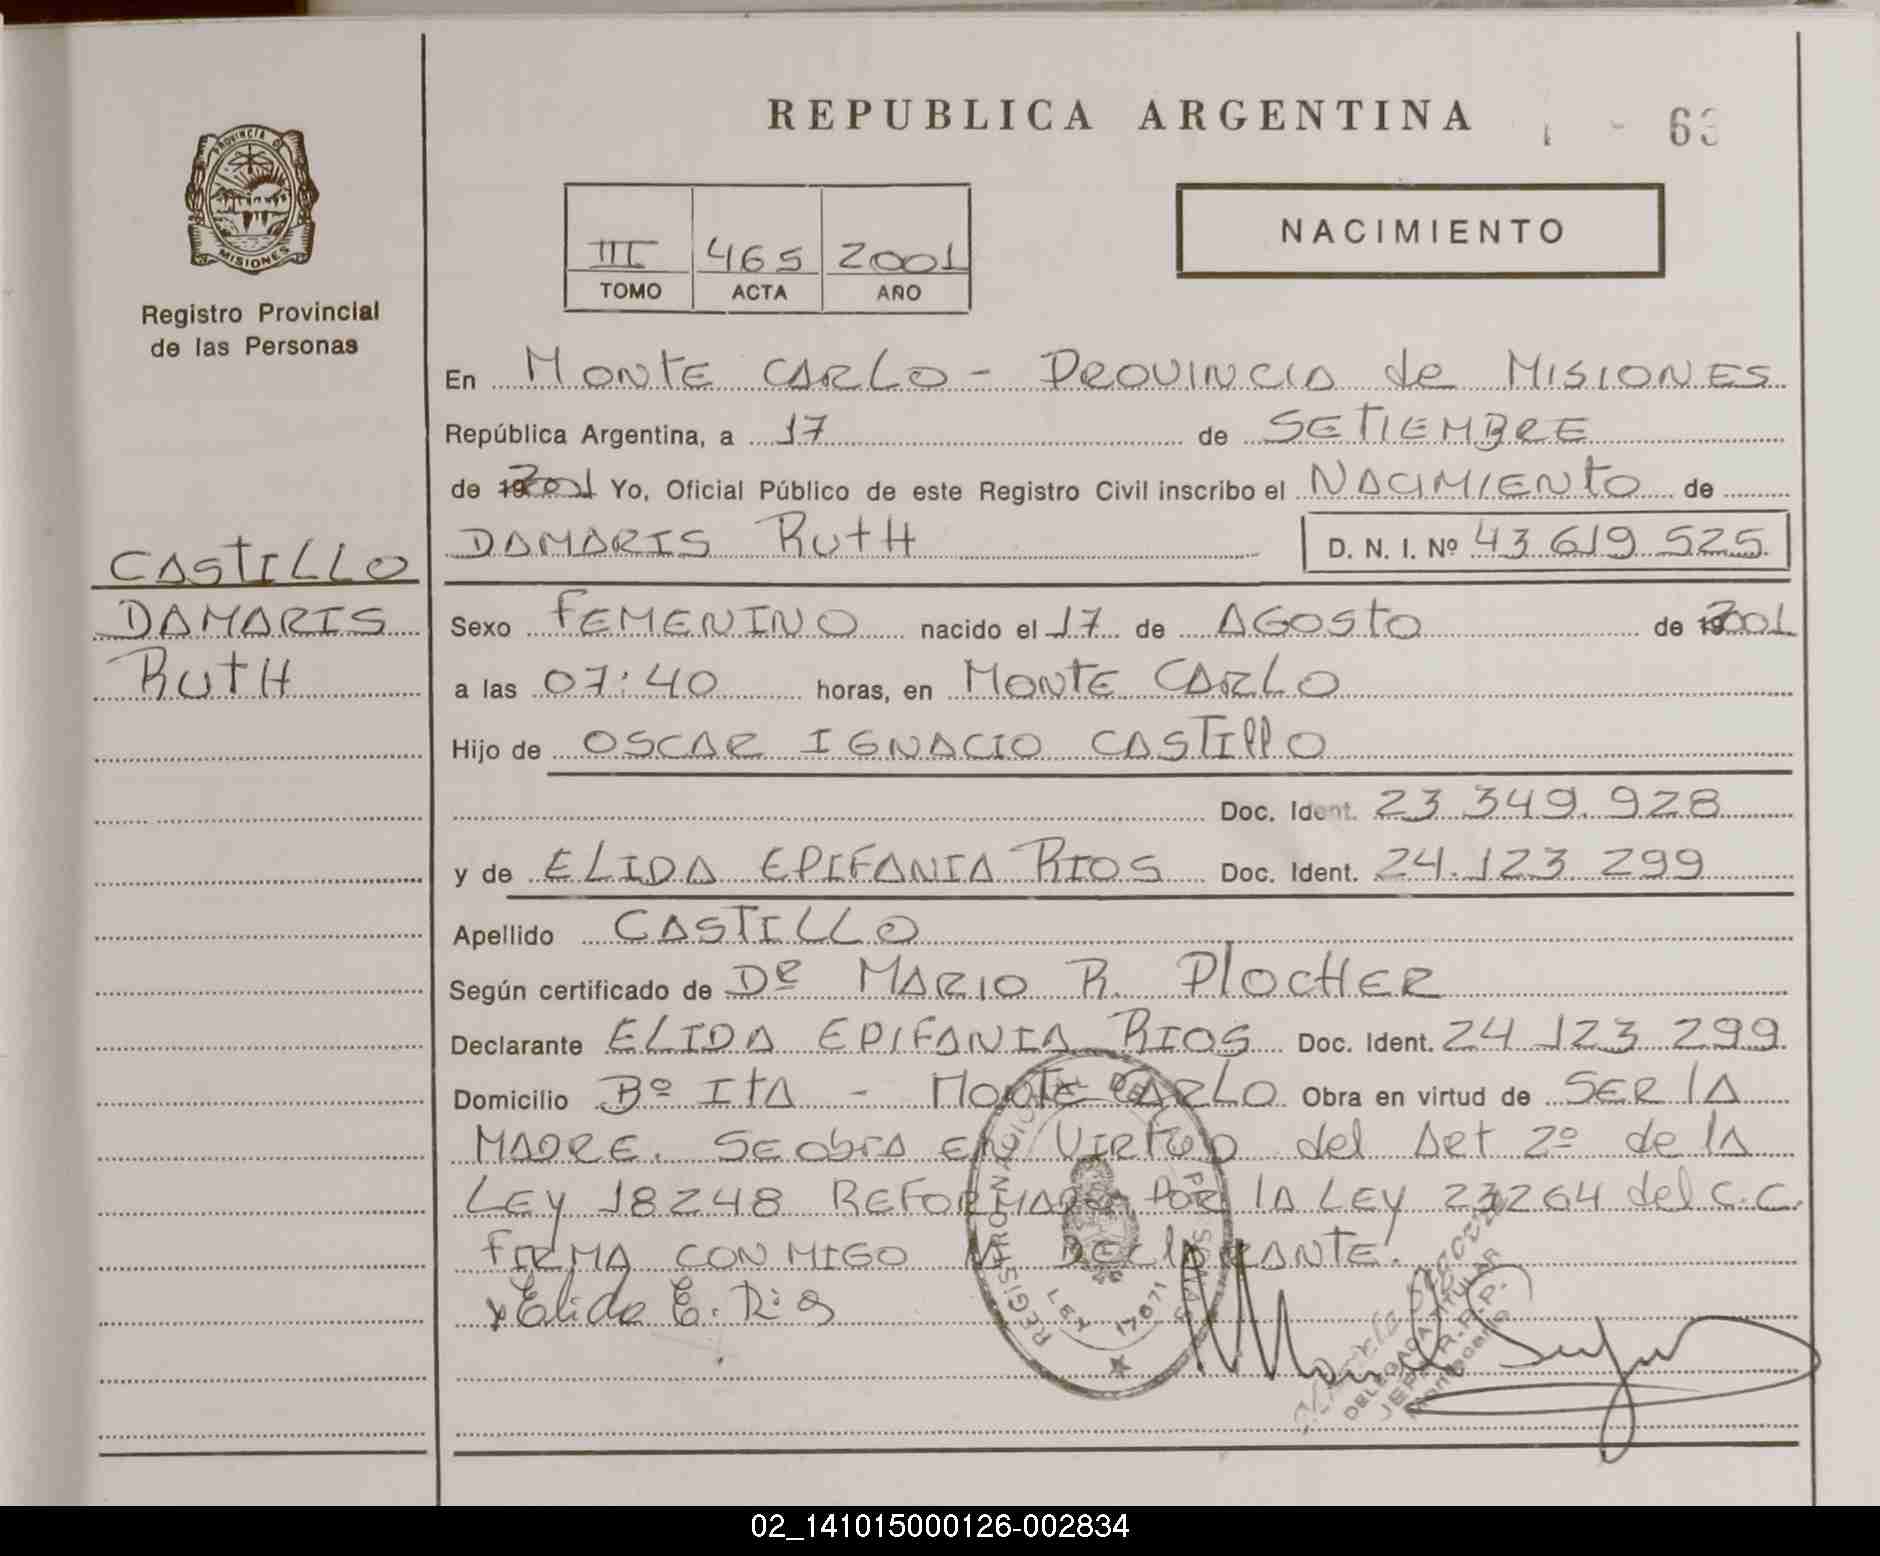 REPUBLICA ARGENTINA
63
PROVINCIA DE
MISIONES
Registro Provincial
de las Personas
III 465 2001
TOMO ACTA AÑO
NACIMIENTO
En MONTE CARLO - PROVINCIA de MISIONES
República Argentina, a 17 de SETIEMBRE
de 19 2001 Yo, Oficial Público de este Registro Civil inscribo el NACIMIENTO de
DAMARIS RUTH D. N. I. Nº 43 619 525
CASTILLO
DAMARIS
RUTH
Sexo FEMENINO nacido el 17 de AGOSTO de 19 2001
a las 07:40 horas, en MONTE CARLO
Hijo de OSCAR IGNACIO CASTILLO
Doc. Ident. 23 349. 928
y de ELIDA EPIFANIA RIOS Doc. Ident. 24.123 299
Apellido CASTILLO
Según certificado de Dr MARIO R. PLOCHER
Declarante ELIDA EPIFANIA RIOS Doc. Ident. 24 123 299
Domicilio Bº ITA - MONTE CARLO Obra en virtud de SER LA
MADRE. SE obra EN VIRTUD del Art 2º de la
LEY 18248 REFORMADA POR la LEY 23264 del C.C.
FIRMA CONMIGO la DEClARANTE.
x Elida E. Rios
REGISTRO NACIONAL DE LAS PERSONAS
LEY 17671
DELEGADA TITULAR
JEFA R.R.P.
Montecarlo
02_141015000126-002834